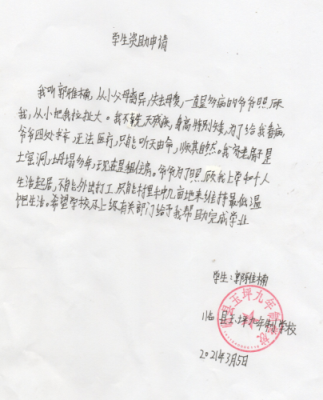 学生资助申请
我叫郭雅楠，从小父母离异，失去母爱，一直是多病的爷爷照顾
我，从小把我拉扯大。我不幸先天残疾，身高特别矮，为了给我看病，
爷爷四处求 无法医疗，只能听天由命，顺其自然。我家老房子是
土窑洞，塌多年，到现在是租住房。爷爷为了照顾我上学和个人
生活起居，不能外出打工，只能在村里种几亩地来维持最低温
饱生活。希望学校及上级有关部门给予我帮助完成学业
学生：郭雅楠
临县玉坪九年制学校
2021年3月5日
县玉坪九年制学校